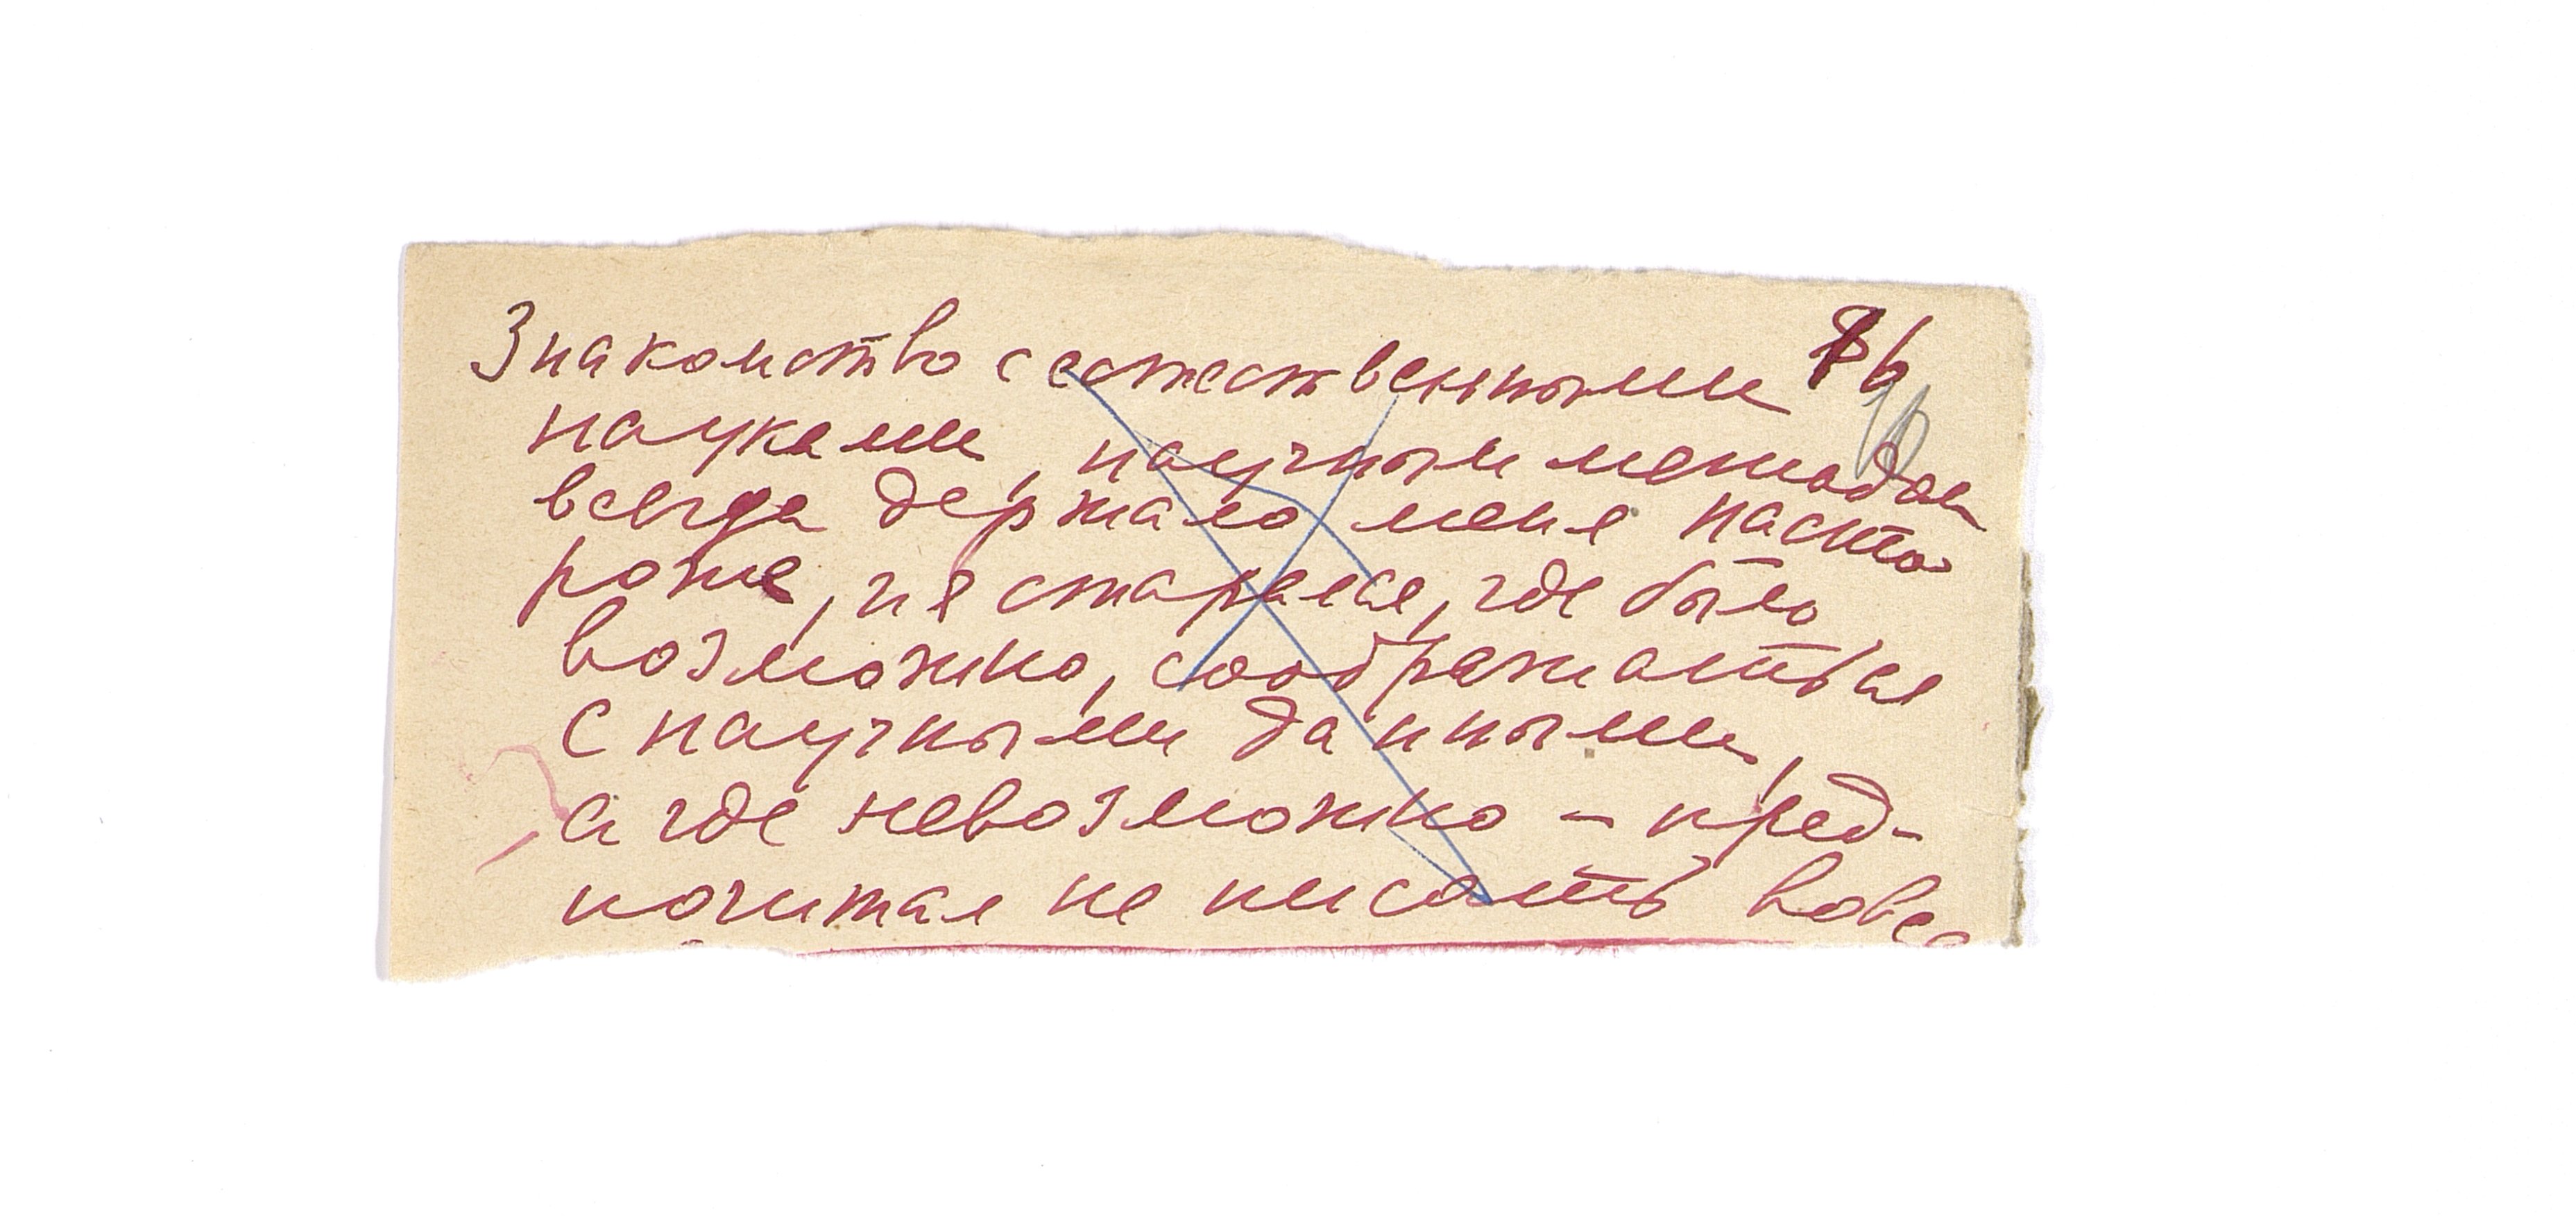 Знакомство с естественными
науками, научным методом
всегда держало меня насто
роже, и я старался, где было
возможно, сообразжаться
с научными данными,
а где невозможно – пред-
почитал не писать вовсе